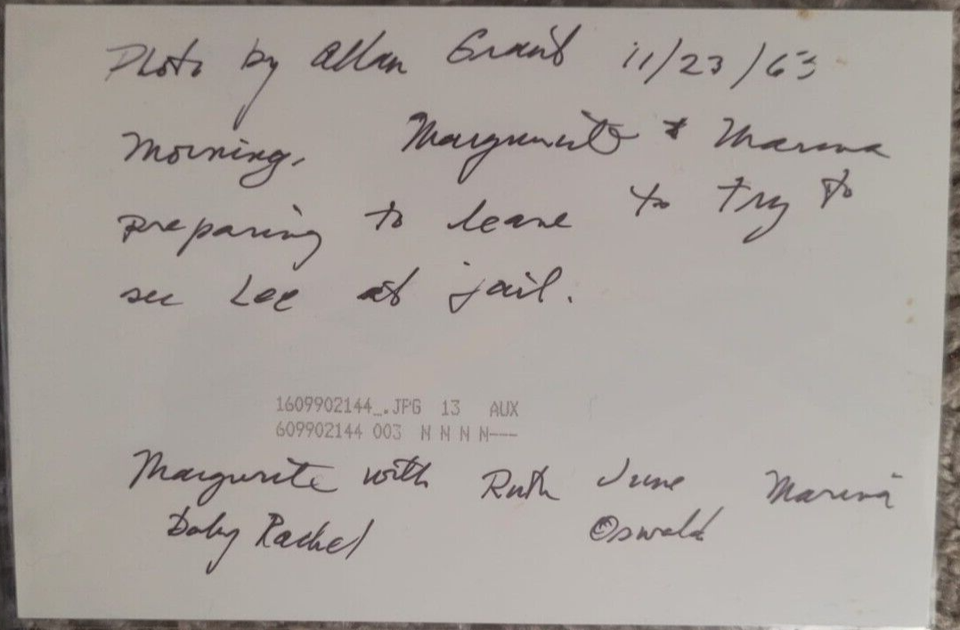 Photo by Allan Grant 11/23/63
Morning. Marguerite & Marina
preparing to leave to try to
see Lee at jail.
1609902144_.JPG 13 AUX
609902144 003 N N N N---
Margurite with Ruth June Marina
Baby Rachel Oswald